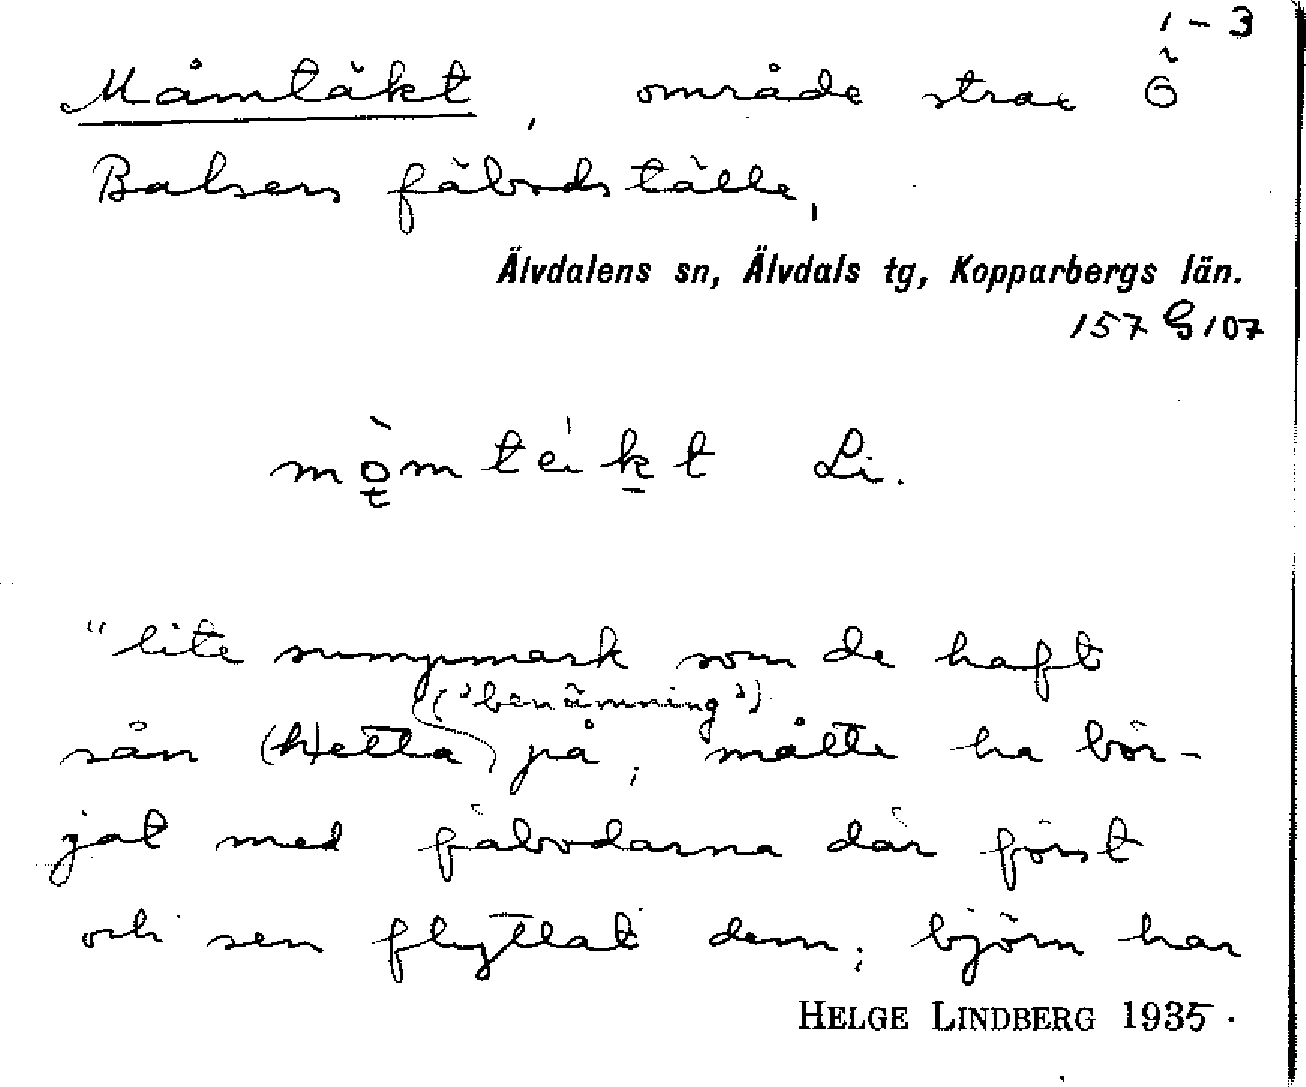 1-3
Måmtäkt, område strax Ö
Balsens fäbodställe,
Älvdalens sn, Älvdals tg, Kopparbergs län.
157 G 107
Li.
"lite sumpmark som de haft
("benämning")
sån (h)etta på, måtte ha bör-
jat med fäbodarna där först
och sen flyttat dem; björn har
HELGE LINDBERG 1935.